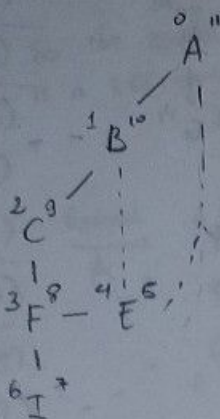 0 A 11
1 B 10
2 C 9
3 F 8 4 E 5
6 I 7